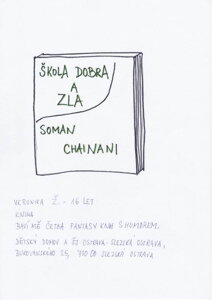 ŠKOLA DOBRA
A
ZLA
SOMAN
CHAINANI
VERONIKA Ž. - 16 LET
KNIHA
BAVÍ MĚ ČETBA FANTASY KNIH S HUMOREM.
DĚTSKÝ DOMOV A ŠJ OSTRAVA - SLEZSKÁ OSTRAVA,
BUKOVANSKÉHO 25, 710 00 SLEZSKÁ OSTRAVA